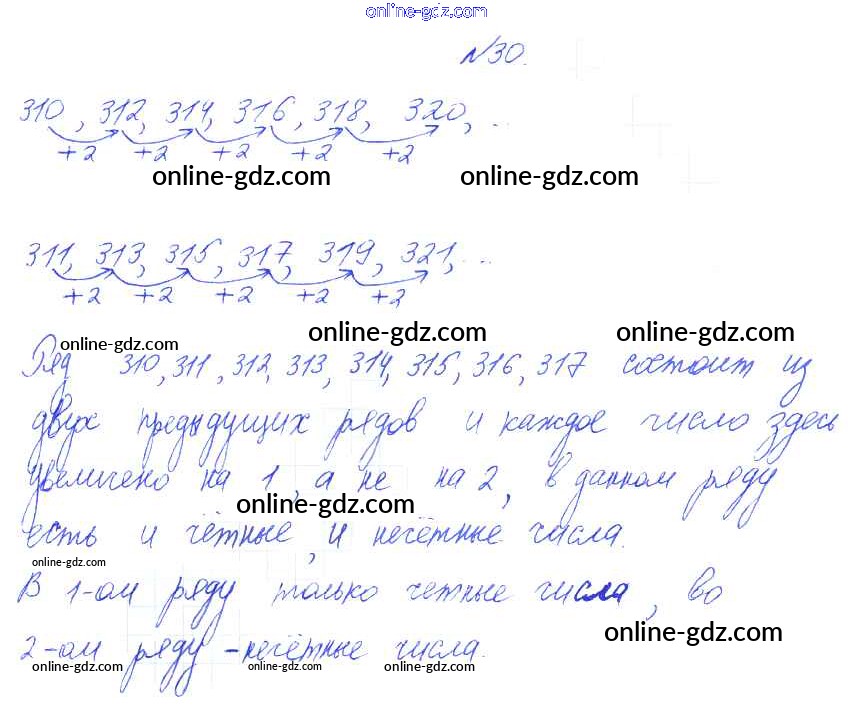 online-gdz.com
№30.
310, 312, 314, 316, 318, 320, ...
+2 +2 +2 +2 +2
online-gdz.com online-gdz.com
311, 313, 315, 317, 319, 321, ...
+2 +2 +2 +2 +2
online-gdz.com online-gdz.com online-gdz.com
Ряд 310, 311, 312, 313, 314, 315, 316, 317 состоит из
двух предыдущих рядов и каждое число здесь
увеличено на 1, а не на 2, в данном ряду
online-gdz.com
есть и чётные, и нечётные числа.
online-gdz.com
В 1-ом ряду только четные числа, во
online-gdz.com
2-ом ряду - нечётные числа.
online-gdz.com online-gdz.com online-gdz.com